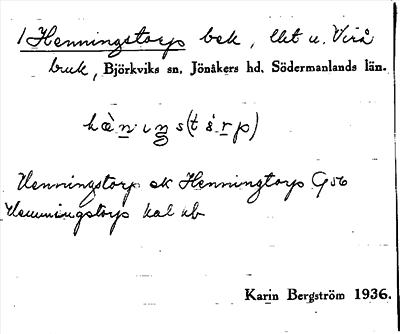 1 Henningstorp bek, lht u. Virå
bruk, Björkviks sn. Jönåkers hd. Södermanlands län.
Henningstorp ek Henningtorp G 56
Hemmingstorp kal ub
Karin Bergström 1936.